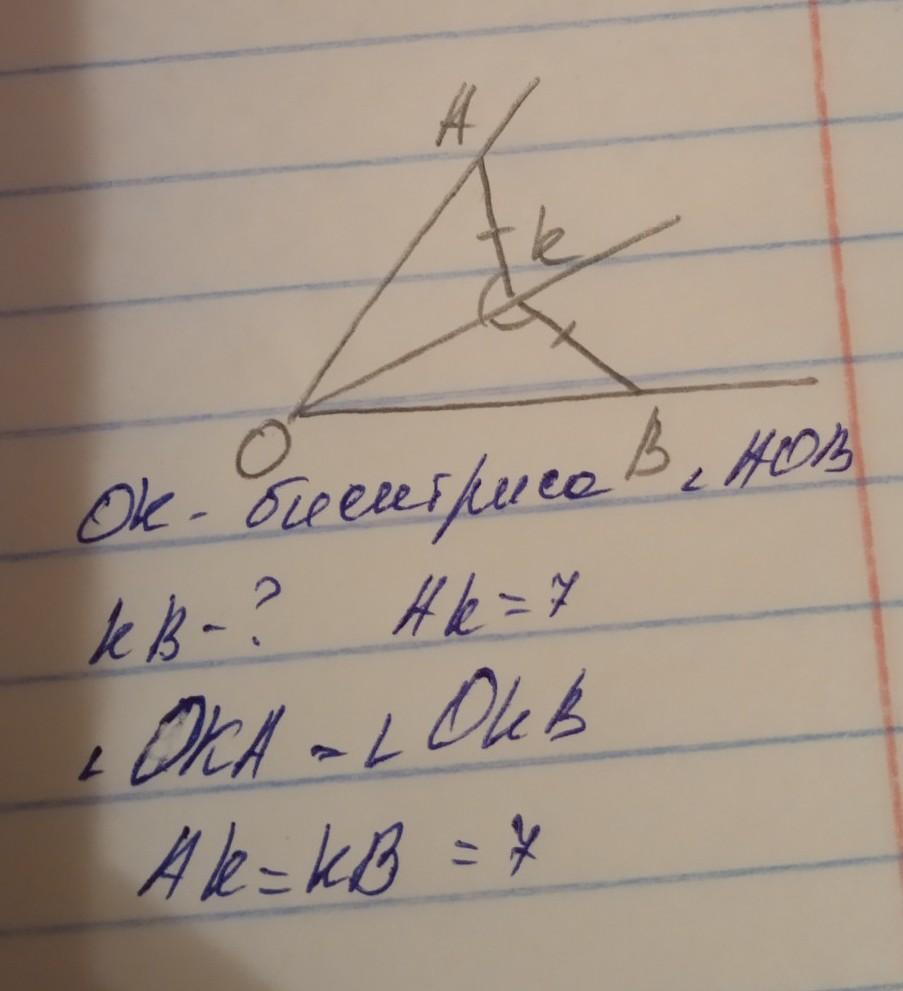 A
k
O
B
Ok - биссктриса ∠ AOB
kB - ? Ak = 7
∠ OKA = ∠ OkB
Ak = kB = 7